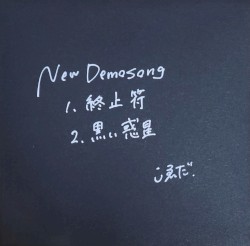 New Demosong
1. 終止符
2. 黒い惑星